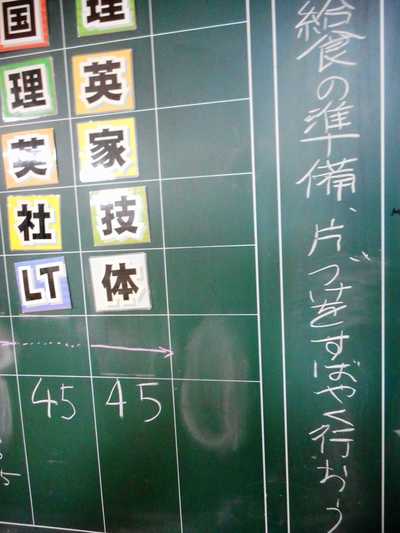 給食の準備、片づけをすばやく行おう
理
英
家
技
体
45
国
理
英
社
LT
45
5